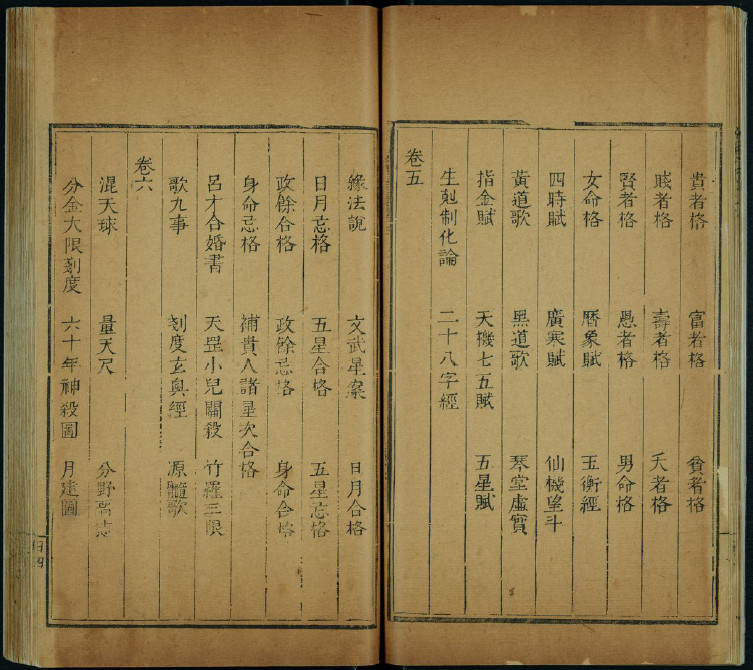 貴者格 富者格 貧者格
賎者格 壽者格 夭者格
賢者格 愚者格 男命格
女命格 曆象賦 玉衡經
四時賦 廣寒賦 仙機望斗
黃道歌 黑道歌 琴堂虛實
指金賦 天機七五賦 五星賦
生剋制化論 二十八字經
卷五
緣法說 文武星案 日月合格
日月忌格 五星合格 五星忌格
政餘合格 政餘忌格 身命合格
身命忌格 補貴人諸星次合格
呂才合婚書 天罡小兒關殺 竹羅三限
歌九事 刻度玄奥經 源髓歌
卷六
混天球 量天尺 分野
分金大限刻度 六十年神殺圖 月建圖